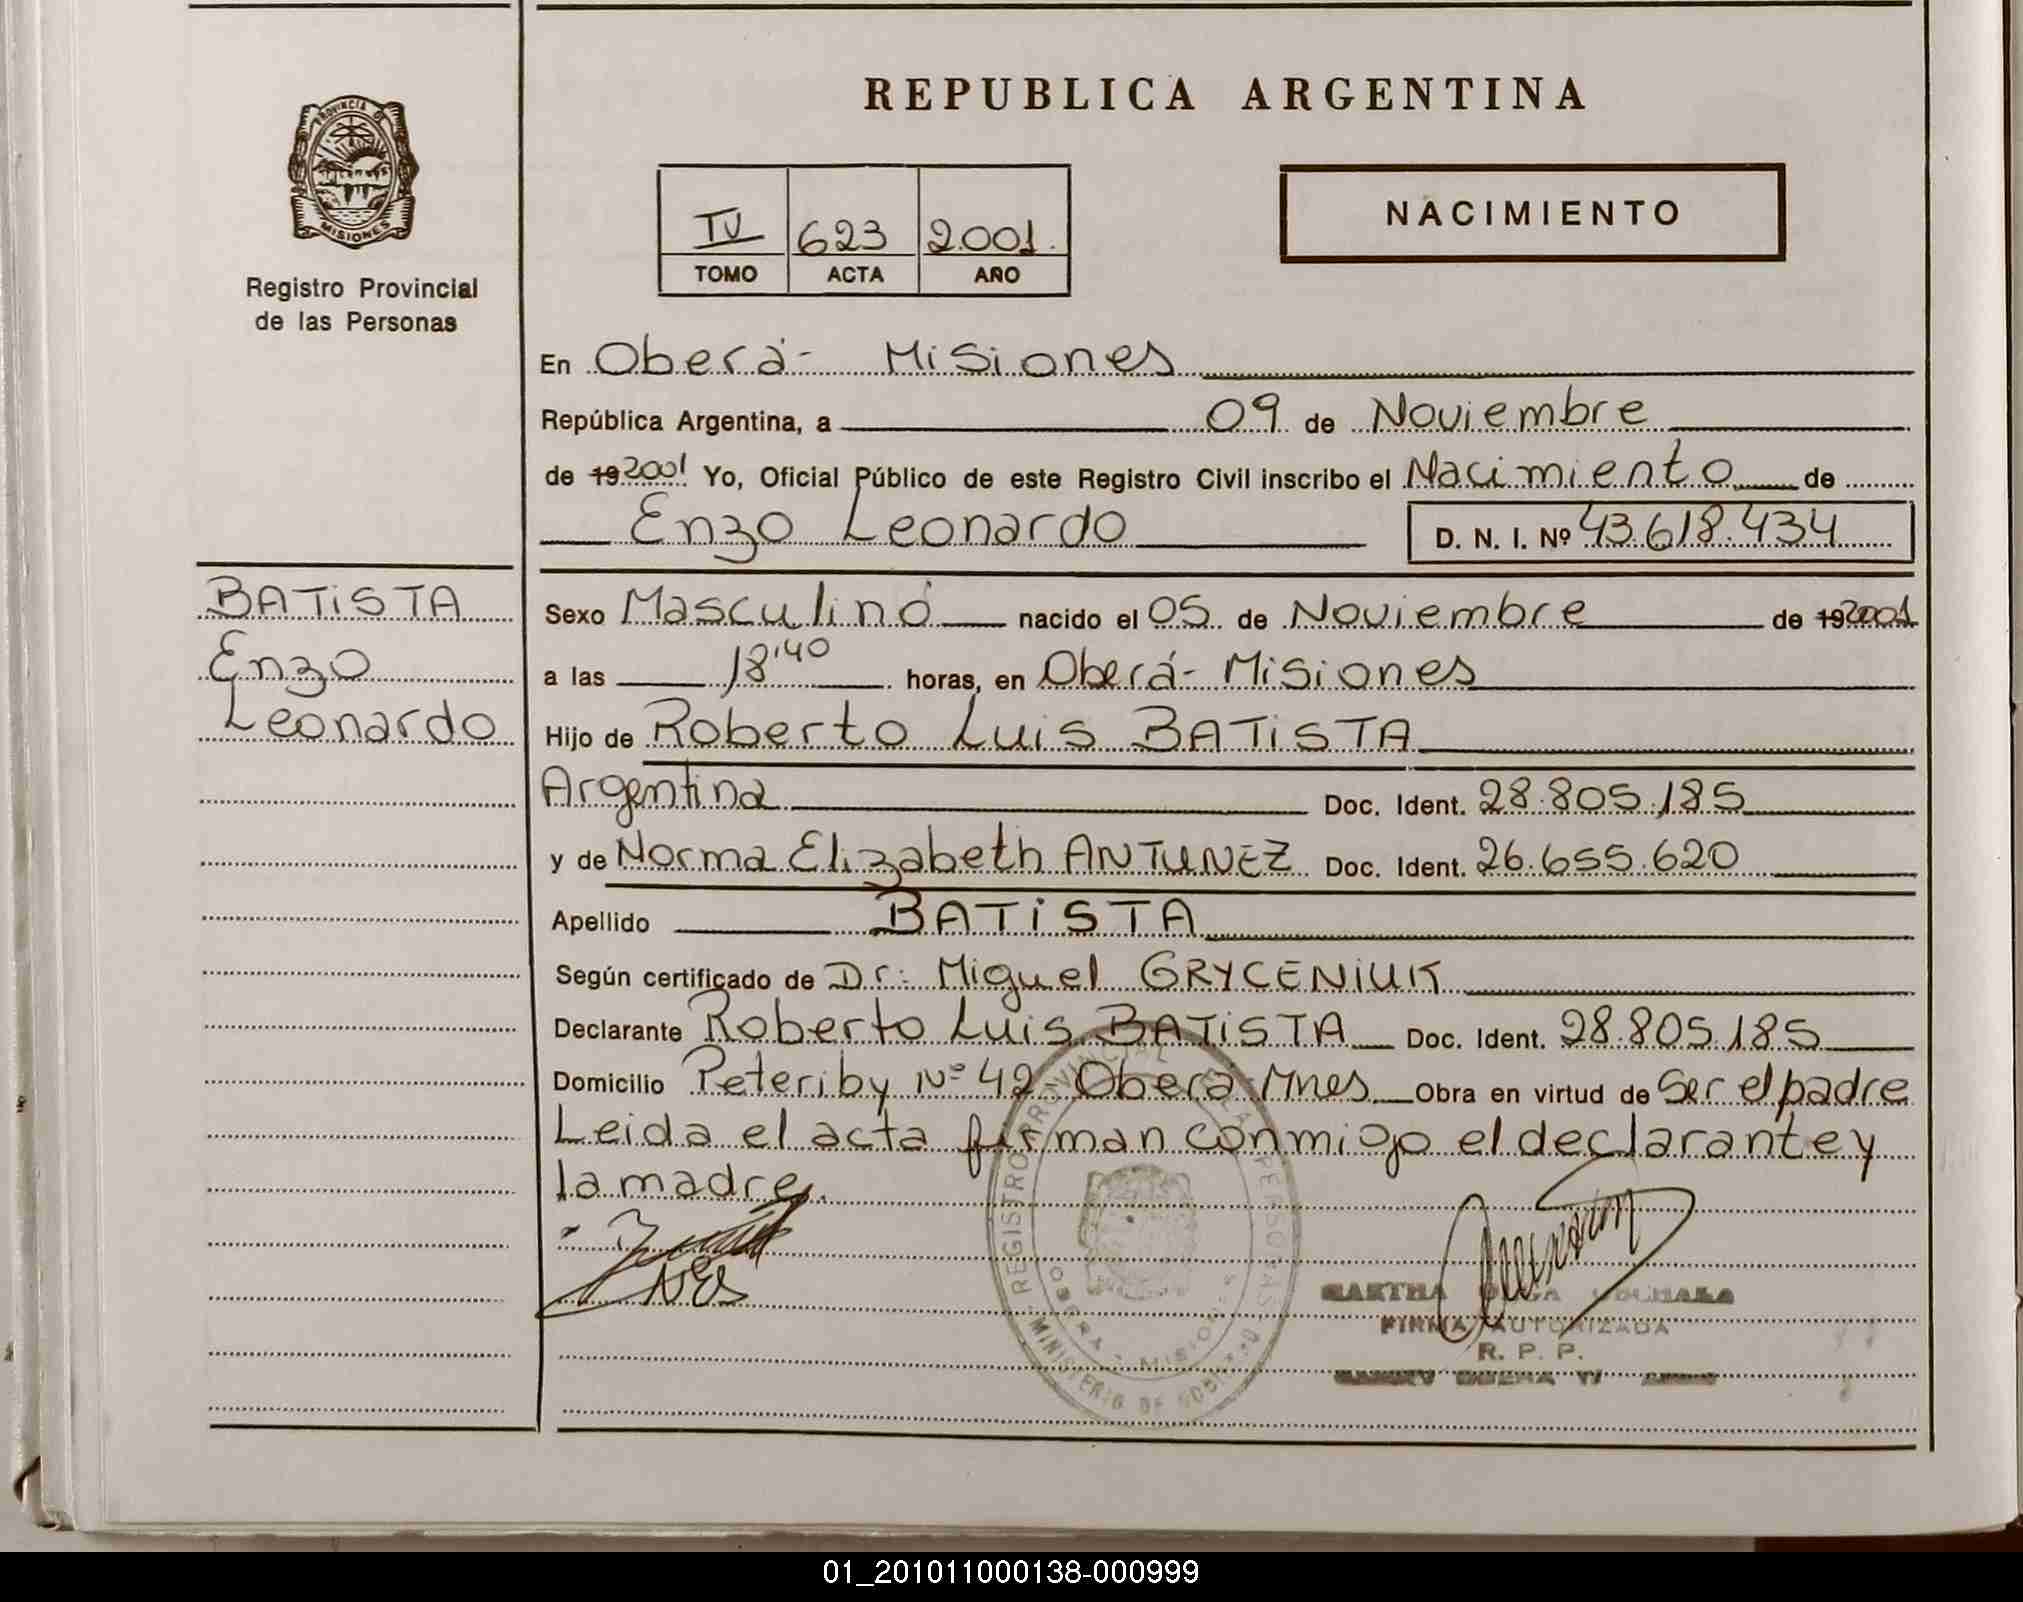 REPUBLICA ARGENTINA
PROVINCIA DE
MISIONES
Registro Provincial
de las Personas
IV 623 2001.
TOMO ACTA AÑO
NACIMIENTO
En Oberá- Misiones
República Argentina, a 09 de Noviembre
de 19 2001 Yo, Oficial Público de este Registro Civil inscribo el Nacimiento de
Enzo Leonardo D. N. I. Nº 43.618.434
BATISTA
Enzo
Leonardo
Sexo Masculino nacido el 05 de Noviembre de 19 2001
a las 18'40 horas, en Oberá- Misiones
Hijo de Roberto Luis BATISTA
Argentina Doc. Ident. 28.805.185
y de Norma Elizabeth ANTUNEZ Doc. Ident. 26.655.620
Apellido BATISTA
Según certificado de Dr: Miguel GRYCENIUK
Declarante Roberto Luis BATISTA Doc. Ident. 28.805.185
Domicilio Peteriby Nº 42 Oberá-Mnes. Obra en virtud de Ser el padre
Leida el acta firman conmigo el declarante y
la madre.
REGISTRO PROVINCIAL DE LAS PERSONAS
MINISTERIO DE GOBIERNO
OBERA - MISIONES
FIRMA AUTORIZADA
R. P. P.
01_201011000138-000999